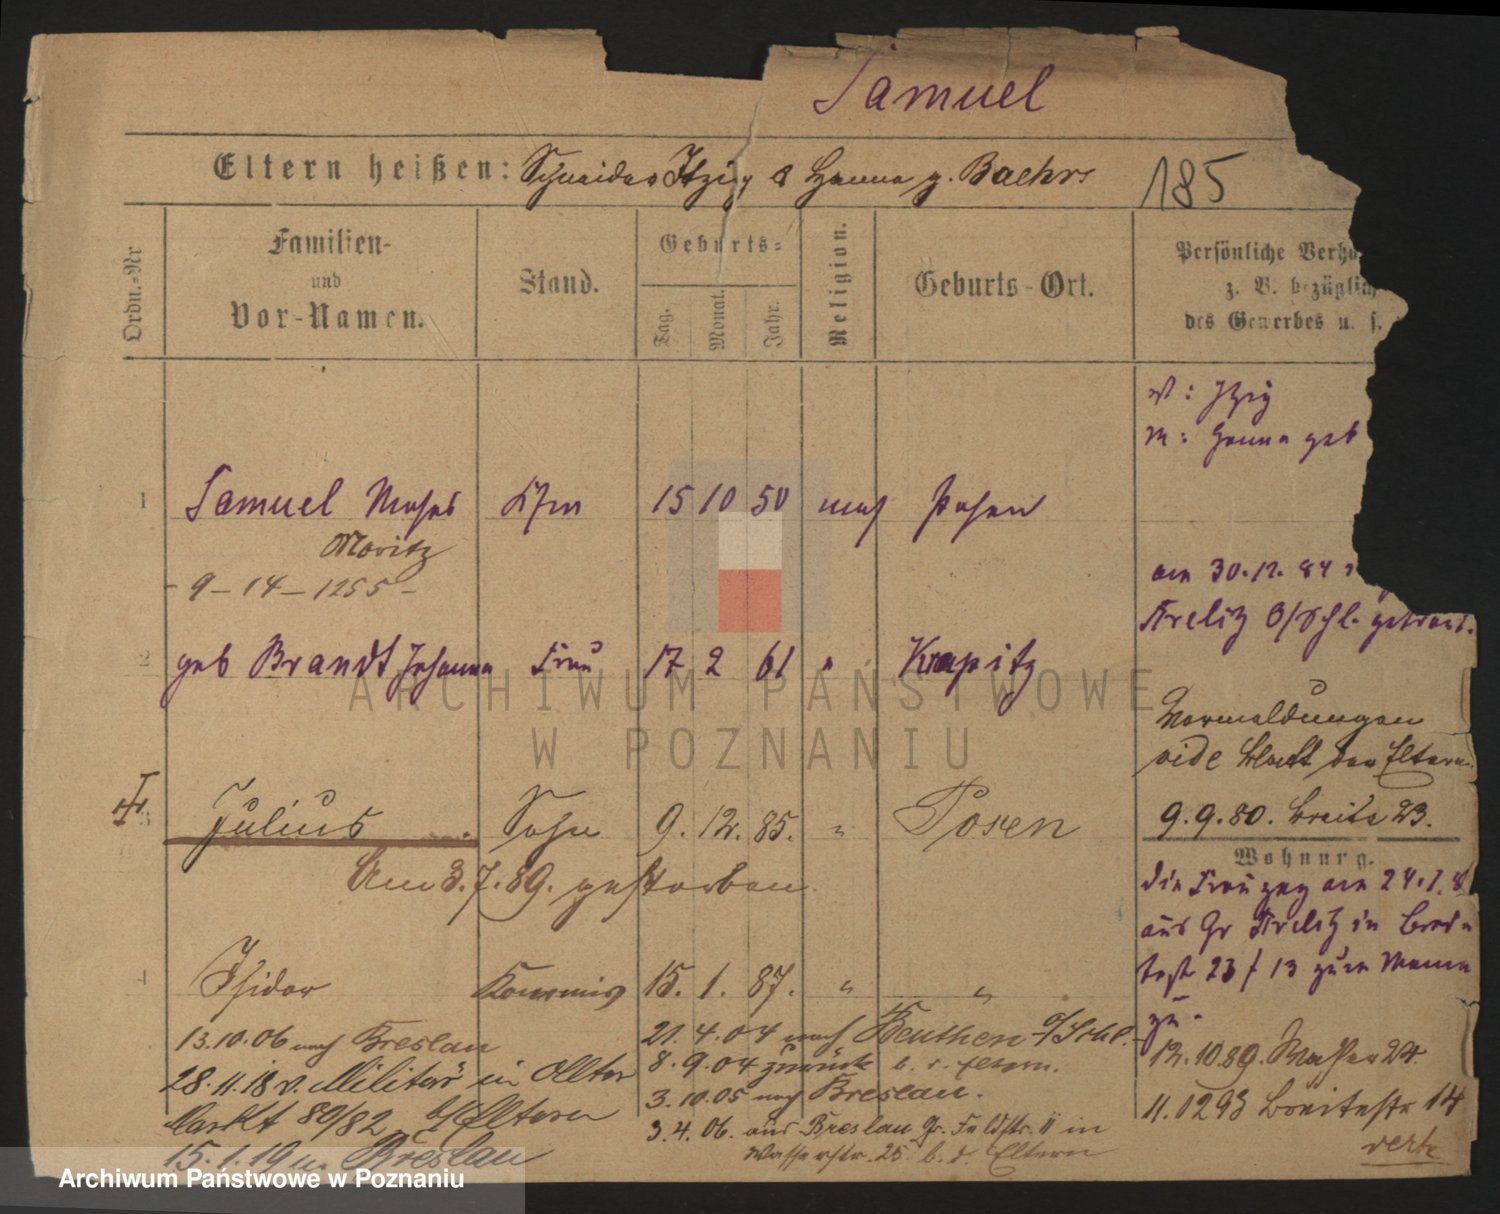 Samuel
Eltern heißen: Schneider Itzig & Hanna g. Baehr
185
Ordn.-Nr
Familien-
und
Vor-Namen.
Stand.
Geburts-
Tag.
Monat.
Jahr.
Religion.
Geburts-Ort.
Persönliche Verhä
z. B. bezüglich
des Gewerbes u. s.
V: Itzig
M: Hanna geb
1 Samuel Moses Kfm 15 10 50 mos Posen
Moritz
- 9 - 14 - 1255 -
am 30.12.84
Strelitz O/Schl. getraut.
2 geb Brandt Johanna Frau 17 2 61 " Krapitz
Vormeldungen
vide Blatt der Eltern.
3 Julius Sohn 9. 12. 85. " Posen
9.9.80. Breite 23.
Am 3.7.89. gestorben.
Wohnung.
die Frau zog am 24.1.8
aus Gr Strelitz in
23/13 zum Manne
zu.
4 Isidor Kommis 15. 1. 87. " "
13.10.06 nach Breslau
21.4.04 nach Beuthen O/Schl.
12.10.89. Wasser 24.
28.11.18 v. Militär in Alter
8.9.04 zurück b. s. Eltern.
3.10.05 nach Breslau.
11.02 93 Breitestr 14
Markt 80/82 b/Eltern
3.4.06. aus Breslau Gr. Feldstr. 11 in
Wasserstr. 25 b. d. Eltern
15.1.19 n. Breslau
verte
ARCHIWUM PAŃSTWOWE
W POZNANIU
Archiwum Państwowe w Poznaniu